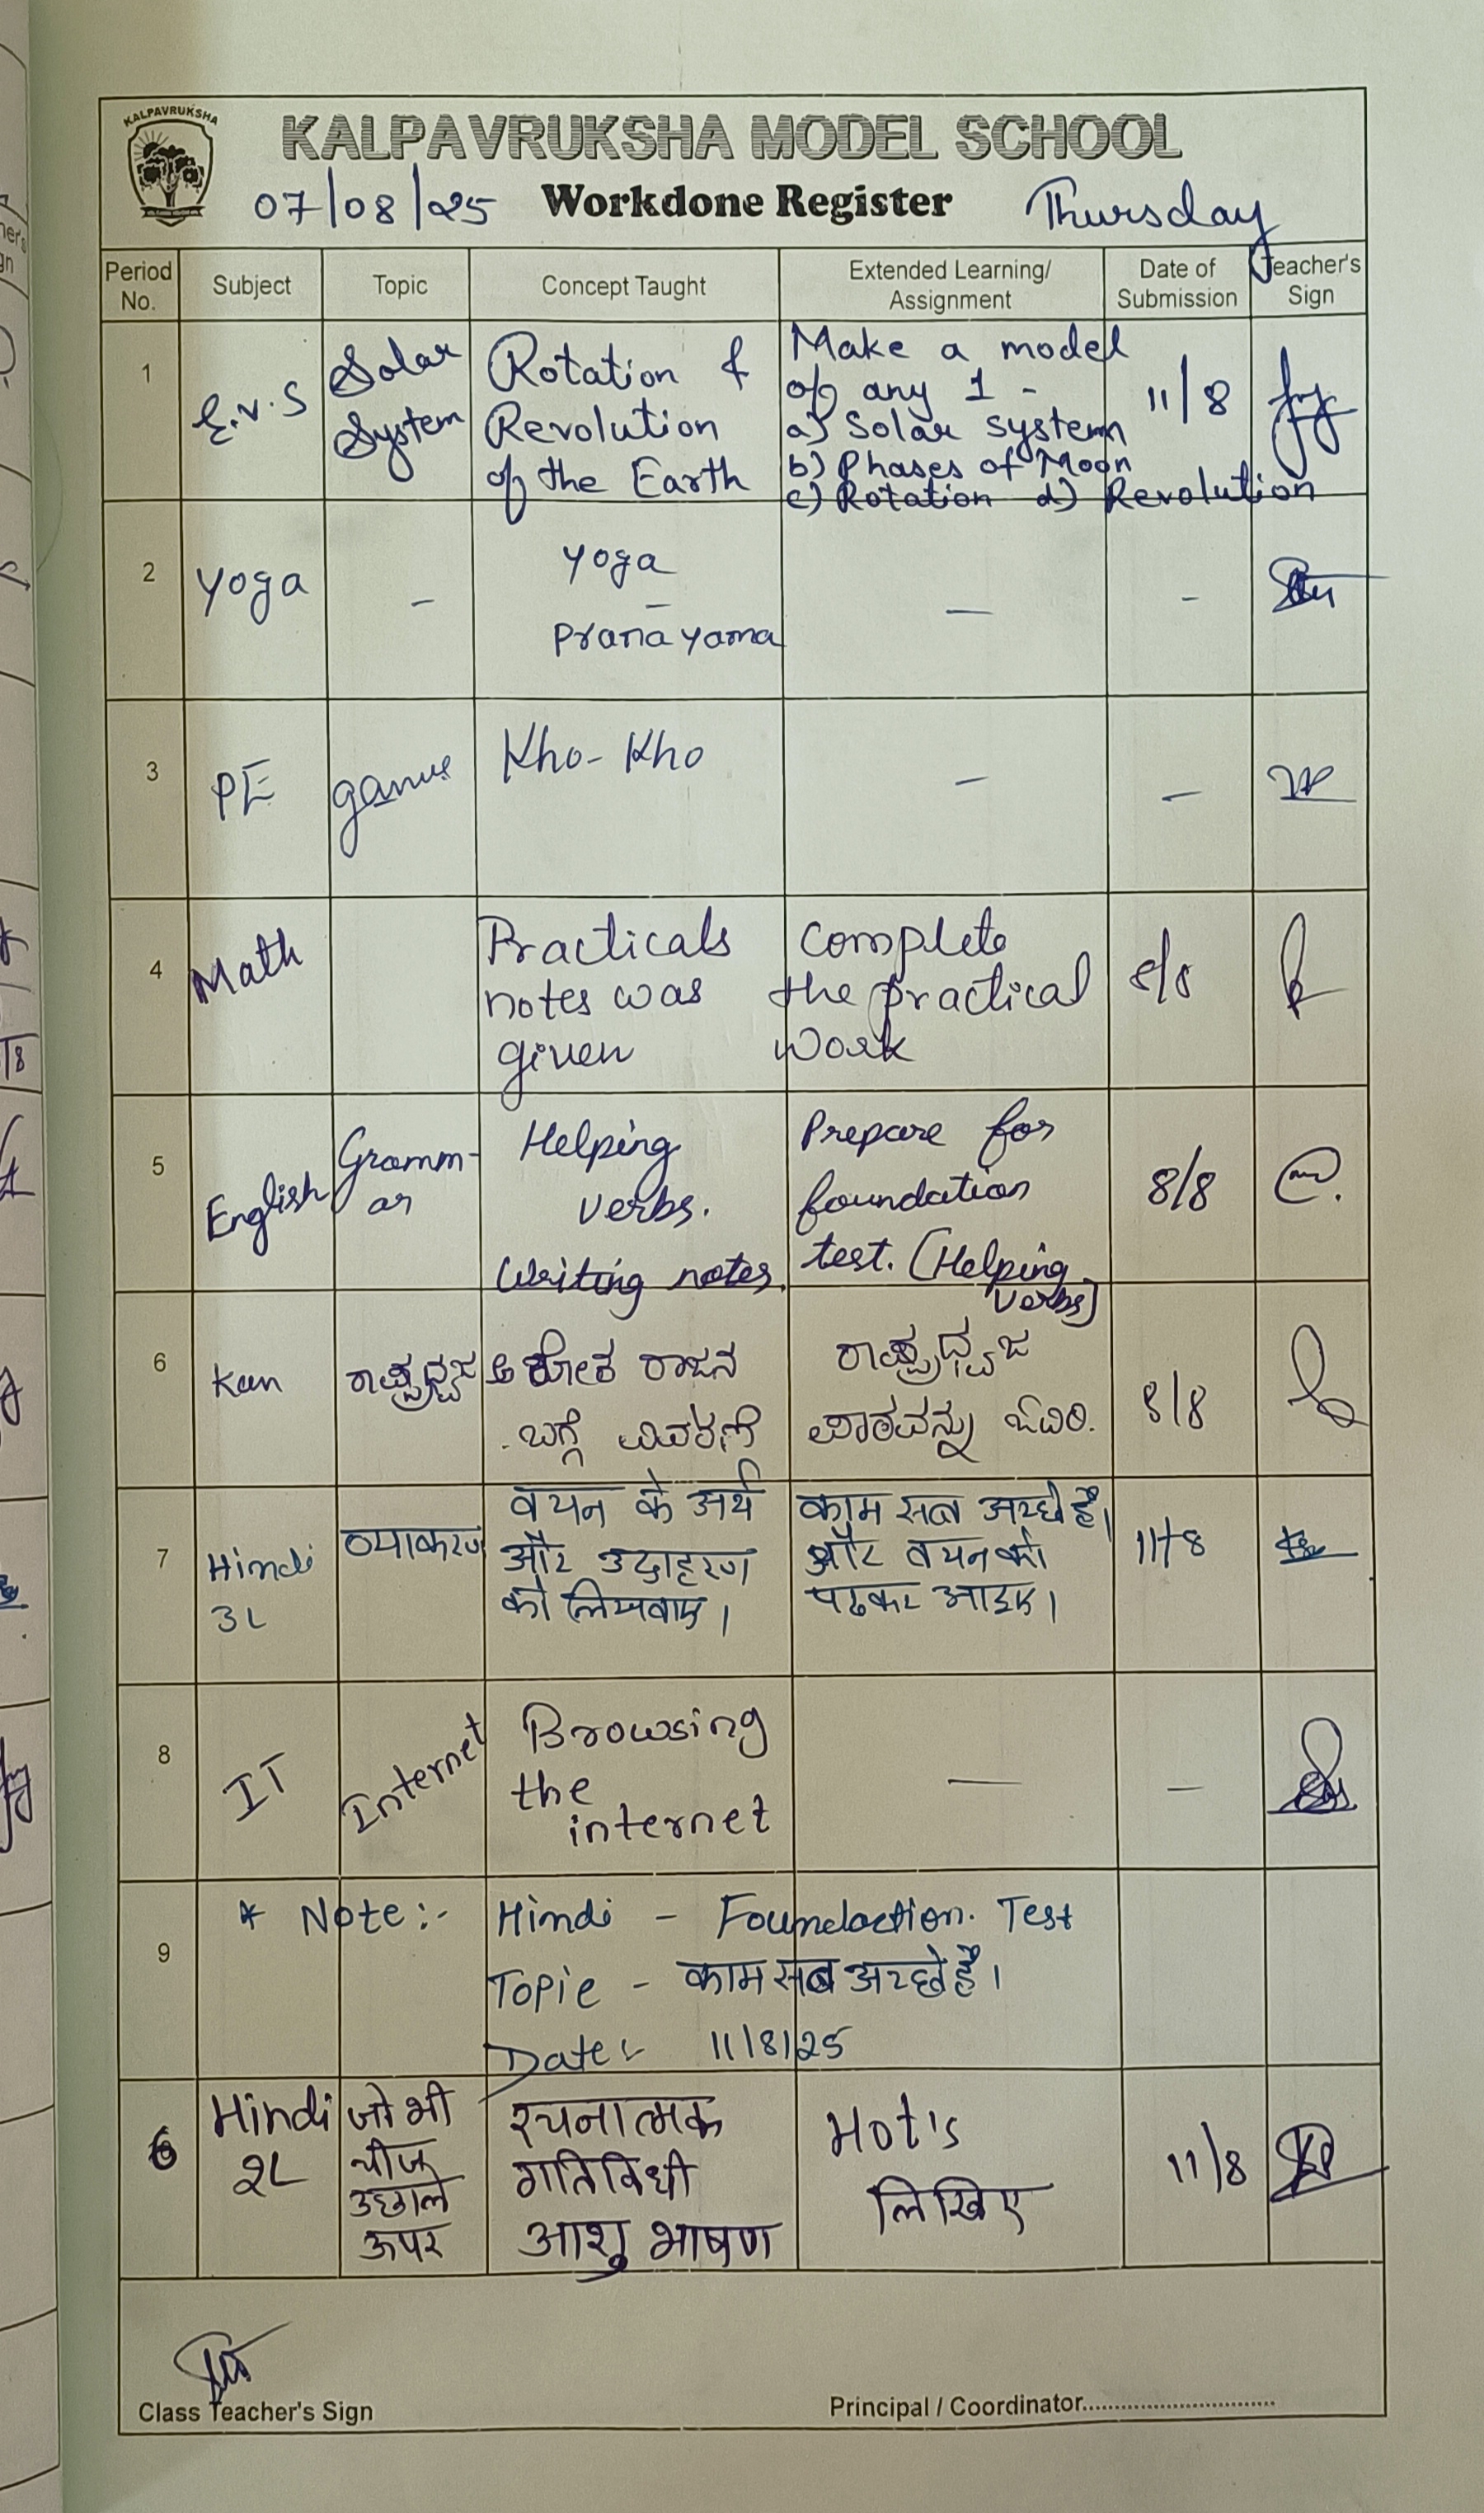 KALPAVRUKSHA
KALPAVRUKSHA MODEL SCHOOL
07/08/25 Workdone Register Thursday
Period No. Subject Topic Concept Taught Extended Learning/ Assignment Date of Submission Teacher's Sign
1 E.V.S Solar System Rotation & Revolution of the Earth
Make a model
of any 1 -
a) Solar system
b) Phases of Moon
c) Rotation d) Revolution
11/8
2 Yoga - Yoga - Pranayama — -
3 PE games Kho-Kho - -
4 Math
Practicals
notes was
given
complete
the practical
work
8/8
5 English Gramm-
ar
Helping
verbs.
Writing notes.
Prepare for
foundation
test. (Helping
verbs)
8/8
6 Kan ರಾಷ್ಟ್ರಧ್ವಜ
ಅಶೋಕ ರಾಜನ
ಬಗ್ಗೆ ವಿವರಣೆ
ರಾಷ್ಟ್ರಧ್ವಜ
ಪಾಠವನ್ನು ಓದಿರಿ.
8/8
7 Hindi
3L
व्याकरण
वचन के अर्थ
और उदाहरण
को लिखवाए।
काम सब अच्छे है।
और वचन को
पढकर आइए।
11/8
8 IT Internet
Browsing
the
internet
— -
9 * Note:- Hindi - Foundaction. Test
Topic - काम सब अच्छे है।
Date:- 11/8/25
6 Hindi
2L
जो भी
चीज
उछाले
ऊपर
रचनात्मक
गतिविधी
आशु भाषण
Hot's
लिखिए
11/8
Class Teacher's Sign Principal / Coordinator..............................